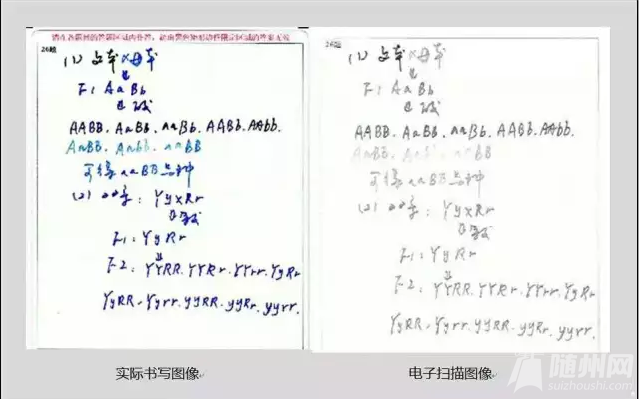 请在各题目的答题区域内作答，超出黑色矩形边框限定区域的答案无效
26题
(1) 父本 × 母本
↓
F1 AaBb
AABB. AaBB. aaBb. AABb. AAbb.
AaBB. Aabb. aaBB
可得 aaBB 品种
(2) YyxRr
F1: YyRr
↓
F2: YYRR. YYRr. YYrr. YyRr
YyRR. Yyrr. yyRR. yyRr. yyrr.
26题
(1) 父本 × 母本
↓
F1 AaBb
AABB. AaBB. aaBb. AABb. AAbb.
AaBB. Aabb. aaBB
可得 aaBB 品种
(2) YyxRr
F1: YyRr
↓
F2: YYRR. YYRr. YYrr. YyRr
YyRR. Yyrr. yyRR. yyRr. yyrr.
实际书写图像
电子扫描图像
随州网
suizhoushi.com